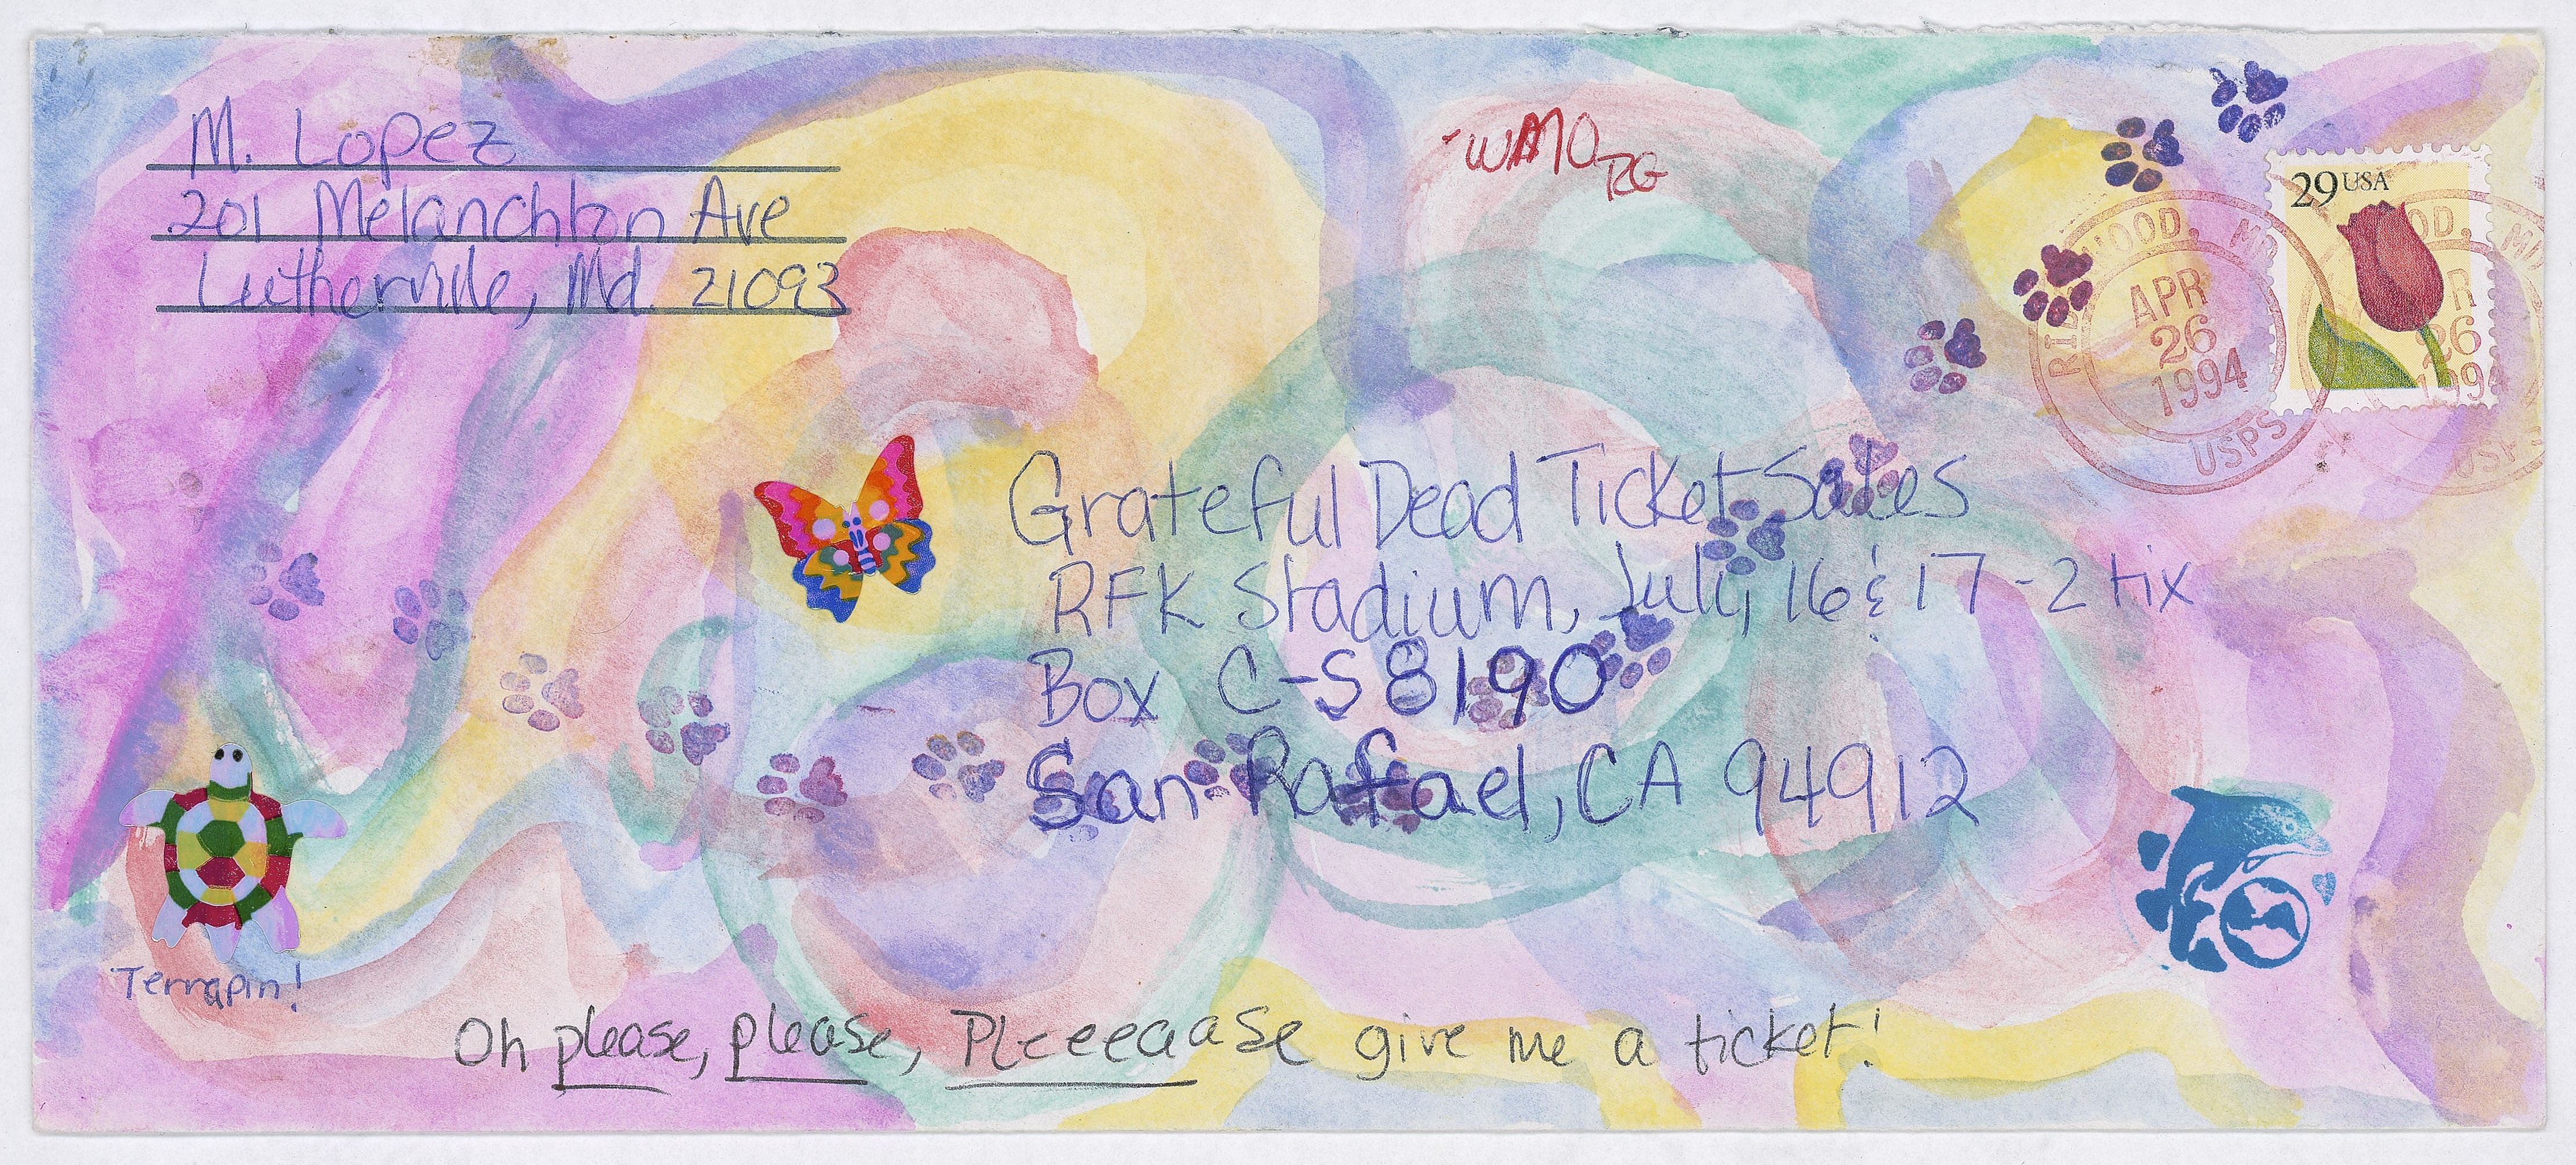 M. Lopez
201 Melanchton Ave
Lutherville, Md. 21093
WAMO
RG
29 USA
APR
26
1994
USPS
26
1994
Grateful Dead Ticket Sales
RFK Stadium, July 16 & 17 - 2 tix
Box C-S 8190
San Rafael, CA 94912
Terrapin!
Oh please, please, Pleeeeaase give me a ticket!